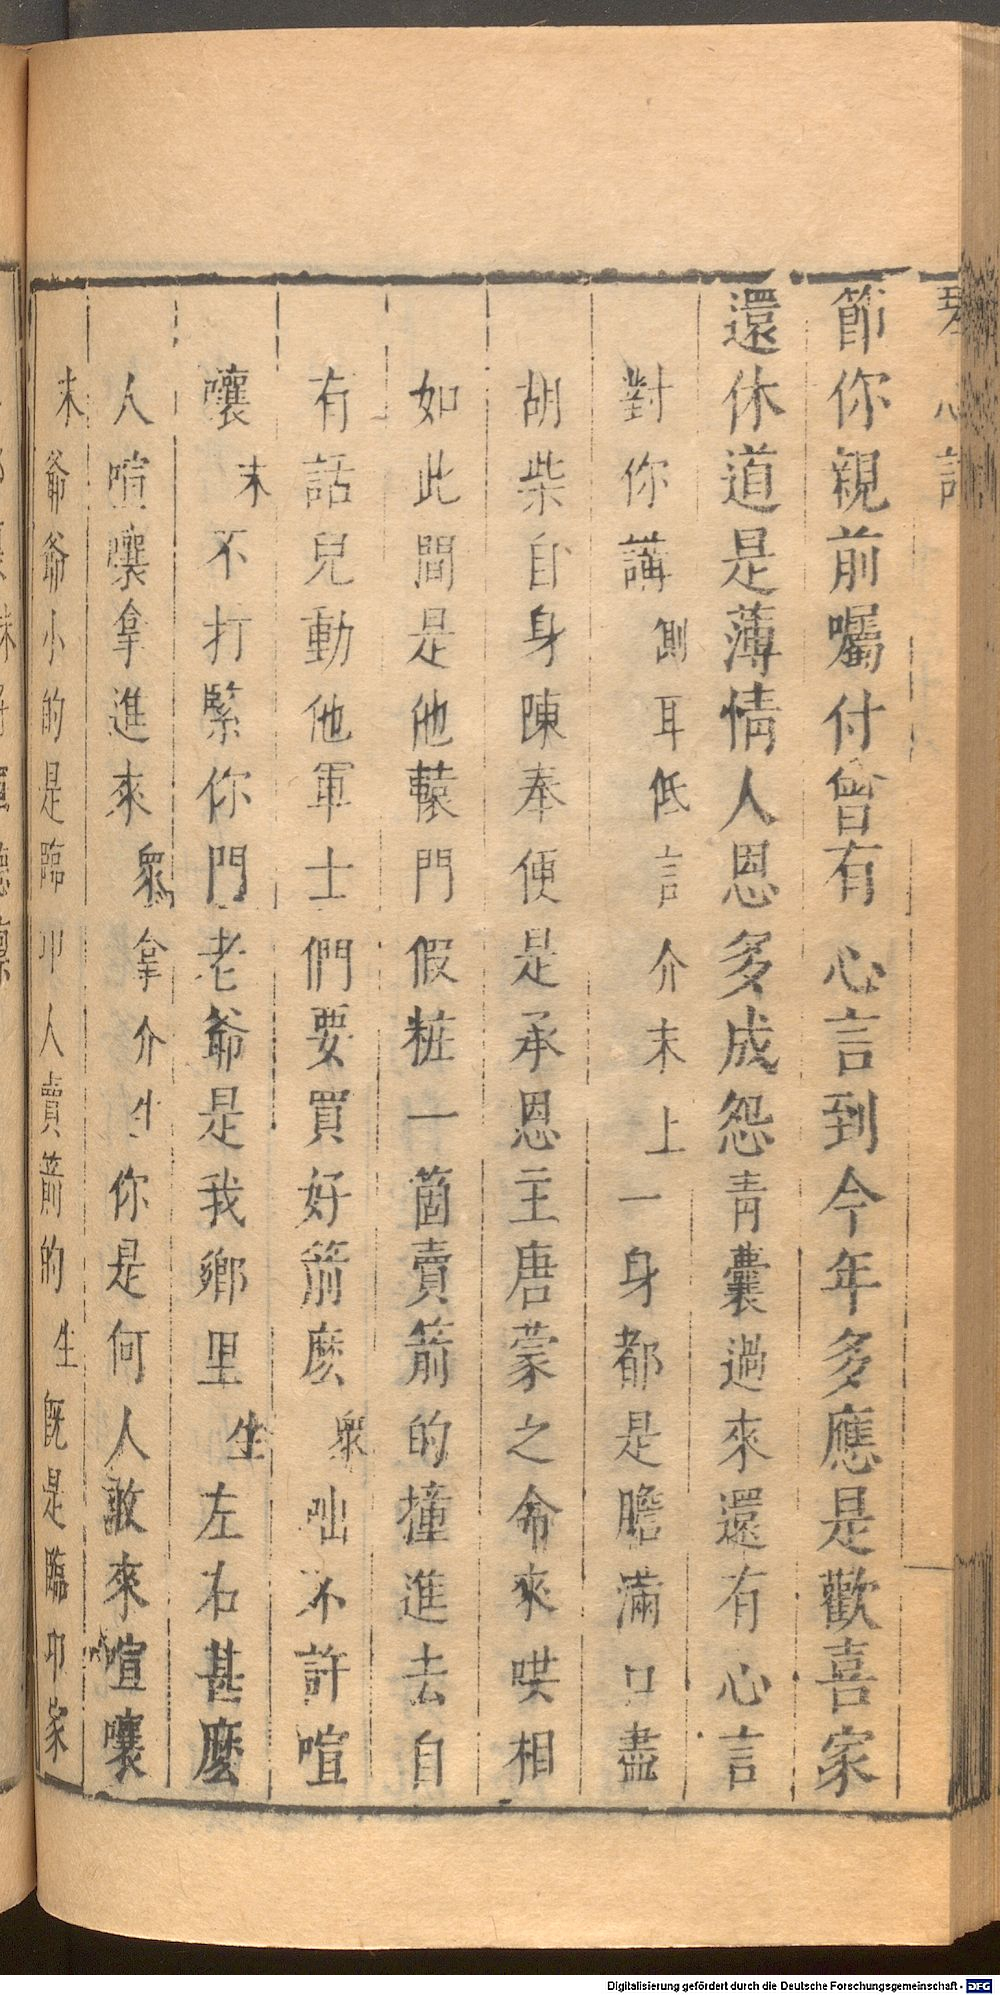 節你親前囑付曾有心言到今年多應是歡喜家
還休道是薄情人恩多成怨青囊過來還有心言
對你講側耳低言介末上一身都是膽滿口盡
胡柴自身陳奉便是承恩主唐蒙之命來哄相
如此間是他轅門假粧一箇賣箭的撞進去自
有話兒動他軍士們要買好箭麽衆咄不許喧
嚷末不打緊你門老爺是我鄉里生左右甚麽
人喧嚷拿進來衆拿介生你是何人敢來喧嚷
末爺爺小的是臨卭人賣箭的生旣是臨卭家
Digitalisierung gefördert durch die Deutsche Forschungsgemeinschaft - DFG